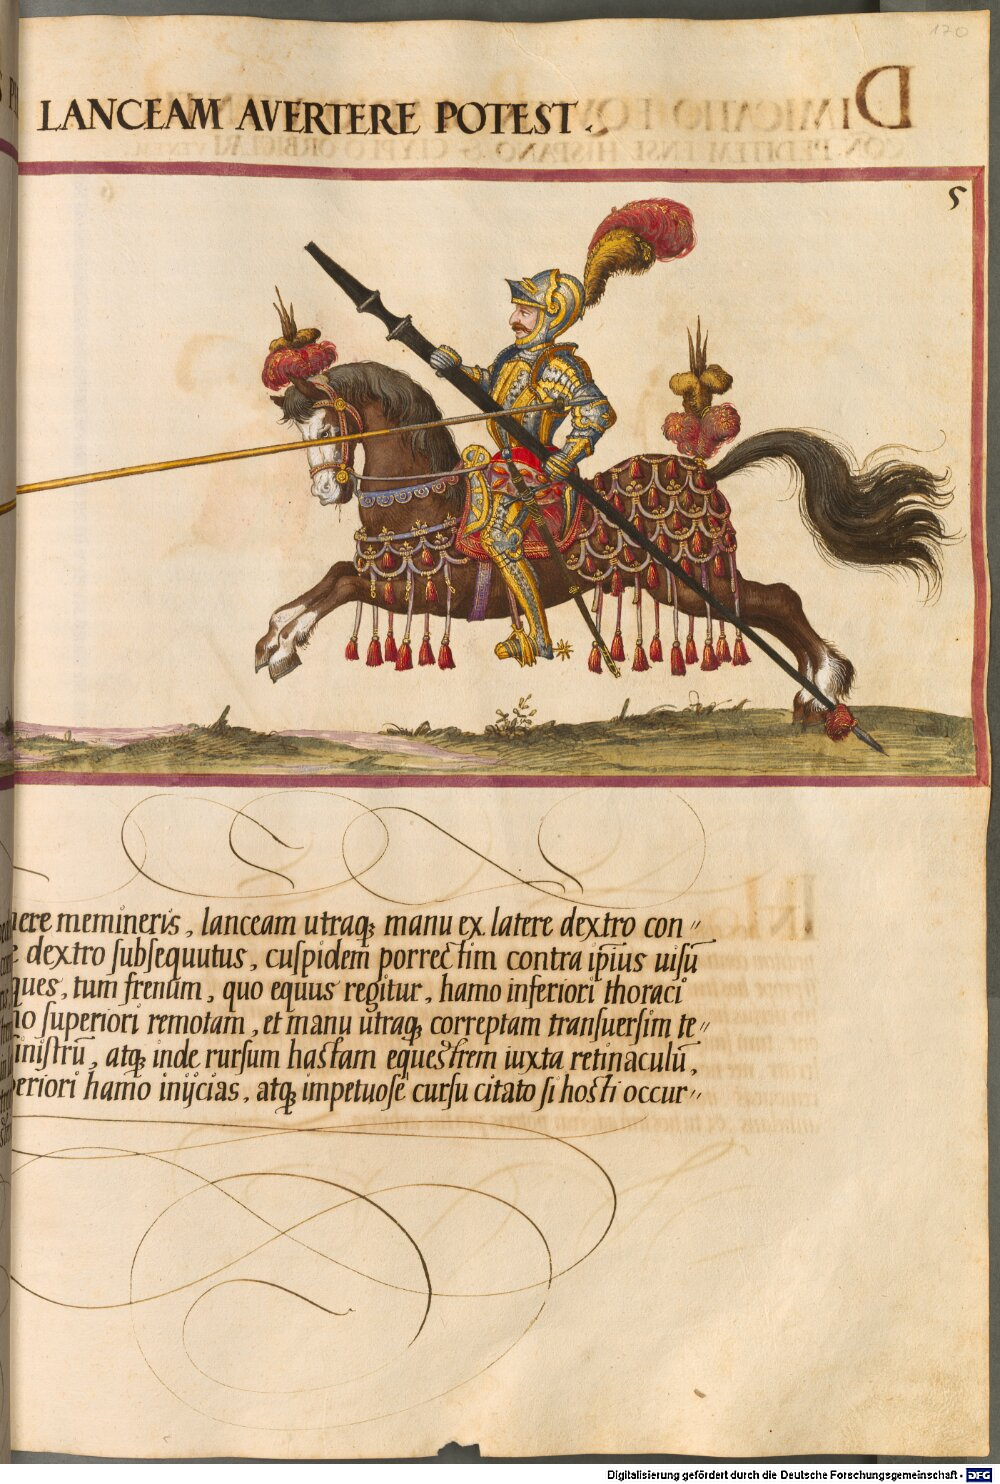 170
LANCEAM AVERTERE POTEST.
5
nere memineris, lanceam utraq; manu ex latere dextro con„
e dextro subsequutus, cuspidem porrectim contra ipsius uisū
ques, tum frenum, quo equus regitur, hamo inferiori thoraci
no superiori remotam, et manu utraq; correptam transuersim te„
inistrū, atq; inde rursum hastam equestrem iuxta retinaculū,
periori hamo inijcias, atq; impetuose cursu citato si hosti occur„
Digitalisierung gefördert durch die Deutsche Forschungsgemeinschaft - DFG